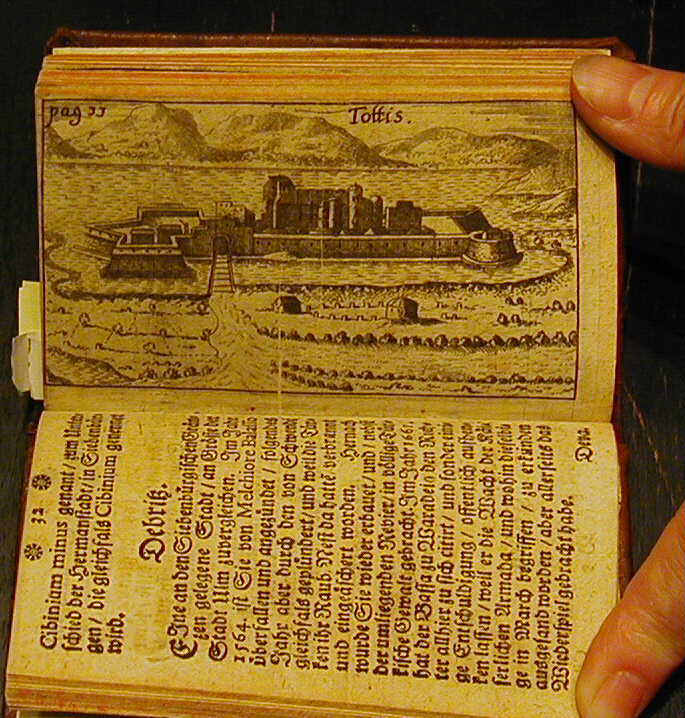 pag 33
Tottis.
32
Cibinium minus genant / zum Unter-
schied der Hermanstadt / in Siebenbür-
gen / die gleichfals Cibinium genennet
wird.
Debritz.
EIne an den Siebenbürgischen Gren-
zen gelegene Stadt / an Grösse der
Stadt Ulm zuvergleichen. Im Jahr
1564. ist Sie von Melchiore
überfallen und angezündet / folgendes
Jahr aber durch den von Schwendi
gleichfals geplündert / und weil die Tür-
ken ihr Raub Nest da hattē verbrant
und eingeäschert worden. Hernach
wurde Sie wieder erbauet / und nebst
der umliegenden Revier / in völlige Tür-
kische Gewalt gebracht. Im Jahr 1661.
hat der Bassa zu Waradein den Rich-
ter allhier zu sich citirt / und sonder eini-
ge Entschuldigung / offentlich aufhen-
ken lassen / weil er die Wach der Käi-
serlichen Armada / und wohin dieselbi-
ge in March begriffen / zu erkünden
ausgesand worden / aber allerseits das
Wiederspiel gebracht habe.